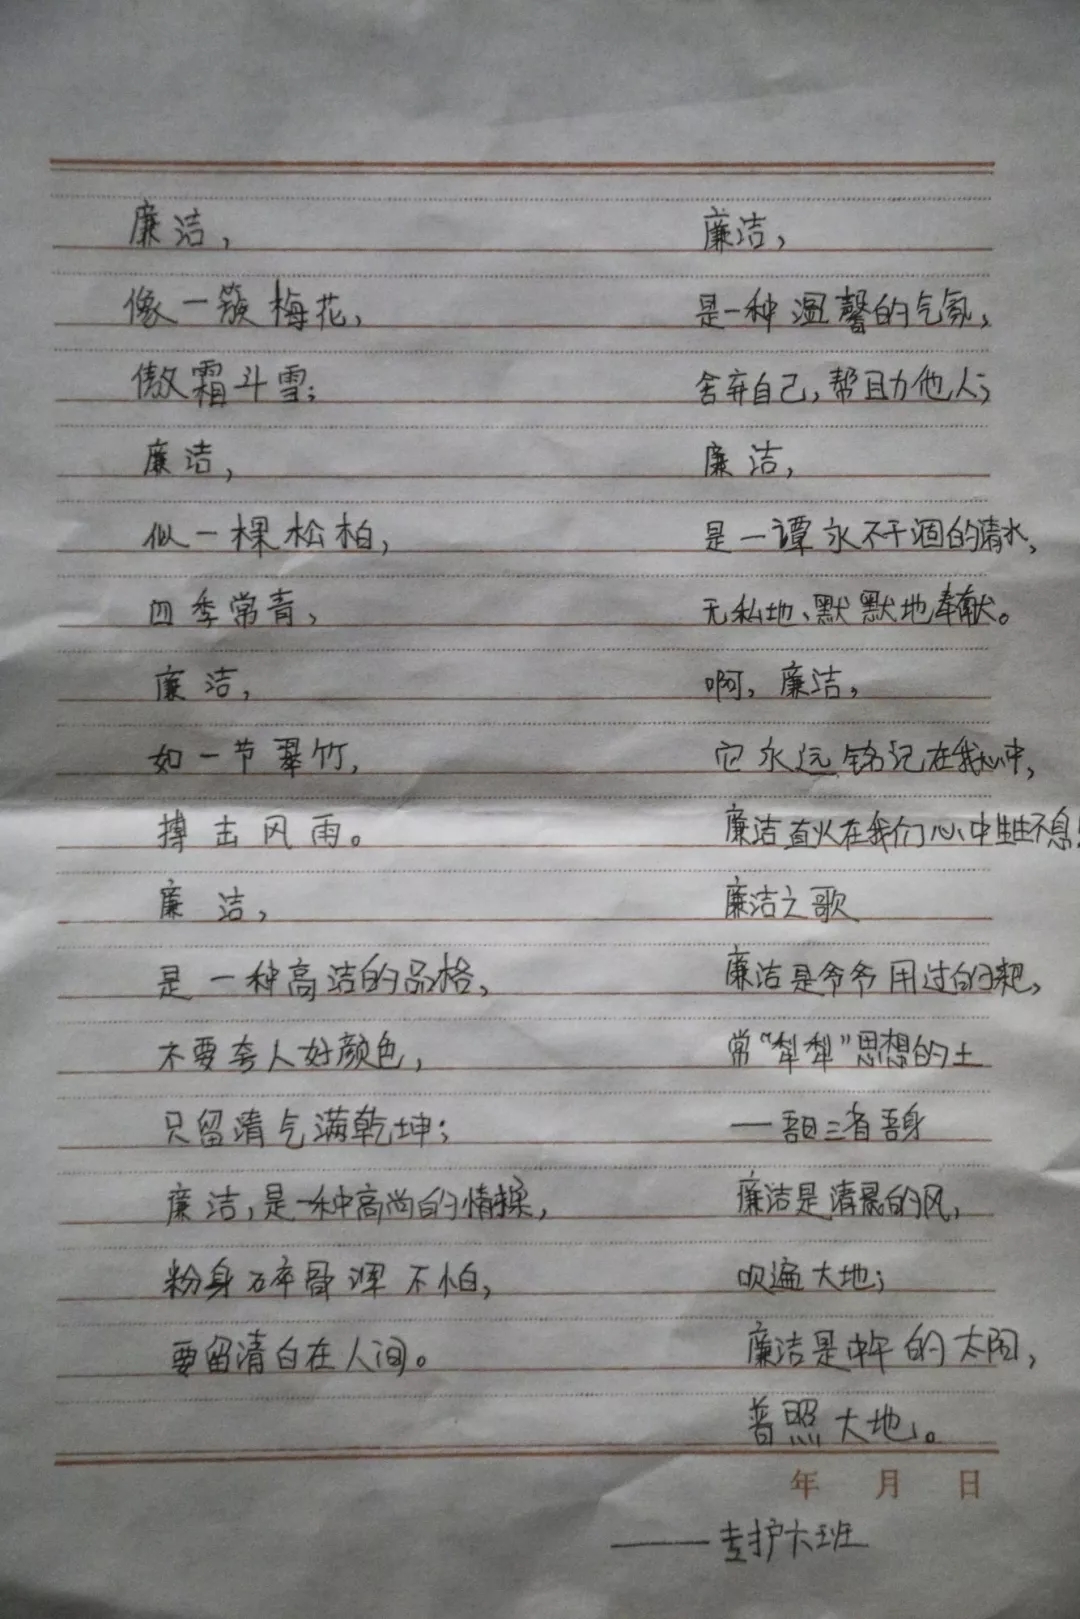 廉洁，
像一簇梅花，
傲霜斗雪；
廉洁，
似一棵松柏，
四季常青，
廉洁，
如一节翠竹，
搏击风雨。
廉洁，
是一种高洁的品格，
不要夸人好颜色，
只留清气满乾坤；
廉洁，是一种高尚的情操，
粉身碎骨浑不怕，
要留清白在人间。
廉洁，
是一种温馨的气氛，
舍弃自己，帮助他人；
廉洁，
是一谭永不干涸的清水，
无私地、默默地奉献。
啊，廉洁，
它永远铭记在我心中，
廉洁直火在我们心中生生不息！
廉洁之歌
廉洁是爷爷用过的耙，
常“犁犁”思想的土
一吾日三省吾身
廉洁是清晨的风，
吹遍大地；
廉洁是中午的太阳，
普照大地。
年 月 日
——专护大班